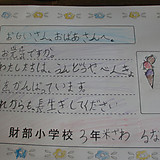 おじいさん、おばあさんへ。
お元気ですか。
わたしたちは、うんどうやべんきょ
をがんばっています。
れからも長生きしてください
財部小学校 3年